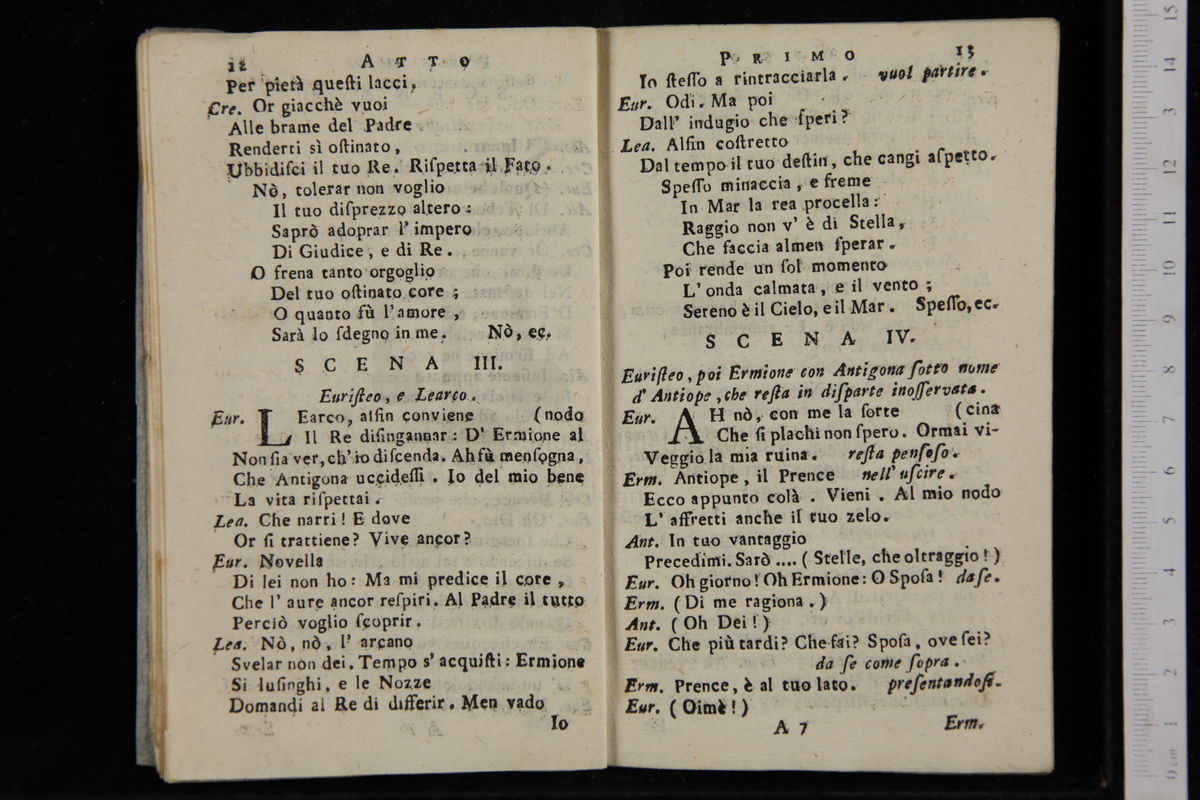 12 ATTO
Per pietà queſti lacci.
Cre. Or giacchè vuoi
Alle brame del Padre
Renderti sì oſtinato,
Ubbidiſci il tuo Re. Riſpetta il Fato.
Nò, tolerar non voglio
Il tuo diſprezzo altero:
Saprò adoprar l'impero
Di Giudice, e di Re.
O frena tanto orgoglio
Del tuo oſtinato core;
O quanto fù l'amore,
Sarà lo ſdegno in me. Nò, ec.
SCENA III.
Euriſteo, e Learco.
Eur. LEarco, alfin conviene (nodo
Il Re diſingannar: D' Ermione al
Non ſia ver, ch'io diſcenda. Ah fù menſogna,
Che Antigona uccideſſi. Io del mio bene
La vita riſpettai.
Lea. Che narri! E dove
Or ſi trattiene? Vive ancor?
Eur. Novella
Di lei non ho: Ma mi predice il core,
Che l'aure ancor reſpiri. Al Padre il tutto
Perciò voglio ſcoprir.
Lea. Nò, nò, l'arcano
Svelar non dei. Tempo s'acquiſti: Ermione
Si luſinghi, e le Nozze
Domandi al Re di differir. Men vado
Io
PRIMO 13
Io ſteſſo a rintracciarla. vuol partire.
Eur. Odi. Ma poi
Dall' indugio che ſperi?
Lea. Alfin coſtretto
Dal tempo il tuo deſtin, che cangi aſpetto.
Speſſo minaccia, e freme
In Mar la rea procella:
Raggio non v' è di Stella,
Che faccia almen ſperar.
Poi rende un ſol momento
L'onda calmata, e il vento;
Sereno è il Cielo, e il Mar. Speſſo, ec.
SCENA IV.
Euriſteo, poi Ermione con Antigona ſotto nome
d' Antiope, che reſta in diſparte inoſſervata.
Eur. AH nò, con me la ſorte (cina
Che ſi plachi non ſpero. Ormai vi-
Veggio la mia ruina. reſta penſoſo.
Erm. Antiope, il Prence nell' uſcire.
Ecco appunto colà. Vieni. Al mio nodo
L' affretti anche il tuo zelo.
Ant. In tuo vantaggio
Precedimi. Sarò .... (Stelle, che oltraggio!)
Eur. Oh giorno! Oh Ermione: O Spoſa! da ſe.
Erm. (Di me ragiona.)
Ant. (Oh Dei!)
Eur. Che più tardi? Che fai? Spoſa, ove ſei?
da ſe come ſopra.
Erm. Prence, è al tuo lato. preſentandoſi.
Eur. (Oimè!)
A 7 Erm.